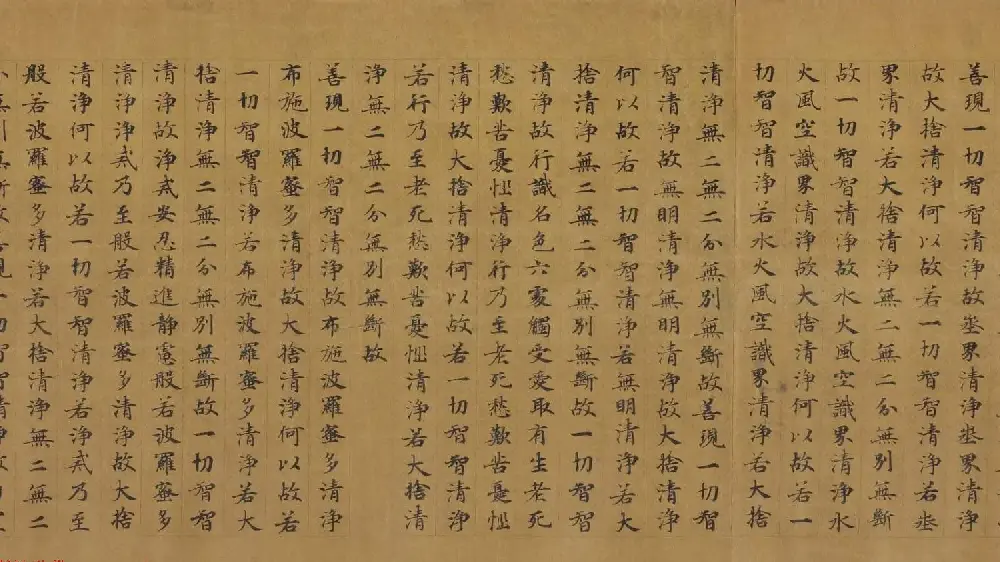 善現一切智智清淨故地界清淨地界清淨
故大捨清淨何以故若一切智智清淨若地
界清淨若大捨清淨無二無二分無別無斷
故一切智智清淨故水火風空識界清淨水
火風空識界清淨故大捨清淨何以故若一
切智智清淨若水火風空識界清淨若大捨
清淨無二無二分無別無斷故善現一切智
智清淨故無明清淨無明清淨故大捨清淨
何以故若一切智智清淨若無明清淨若大
捨清淨無二無二分無別無斷故一切智智
清淨故行識名色六處觸受愛取有生老死
愁歎苦憂惱清淨行乃至老死愁歎苦憂惱
清淨故大捨清淨何以故若一切智智清淨
若行乃至老死愁歎苦憂惱清淨若大捨清
淨無二無二分無別無斷故
善現一切智智清淨故布施波羅蜜多清淨
布施波羅蜜多清淨故大捨清淨何以故若
一切智智清淨若布施波羅蜜多清淨若大
捨清淨無二無二分無別無斷故一切智智
清淨故淨戒安忍精進靜慮般若波羅蜜多
清淨淨戒乃至般若波羅蜜多清淨故大捨
清淨何以故若一切智智清淨若淨戒乃至
般若波羅蜜多清淨若大捨清淨無二無二